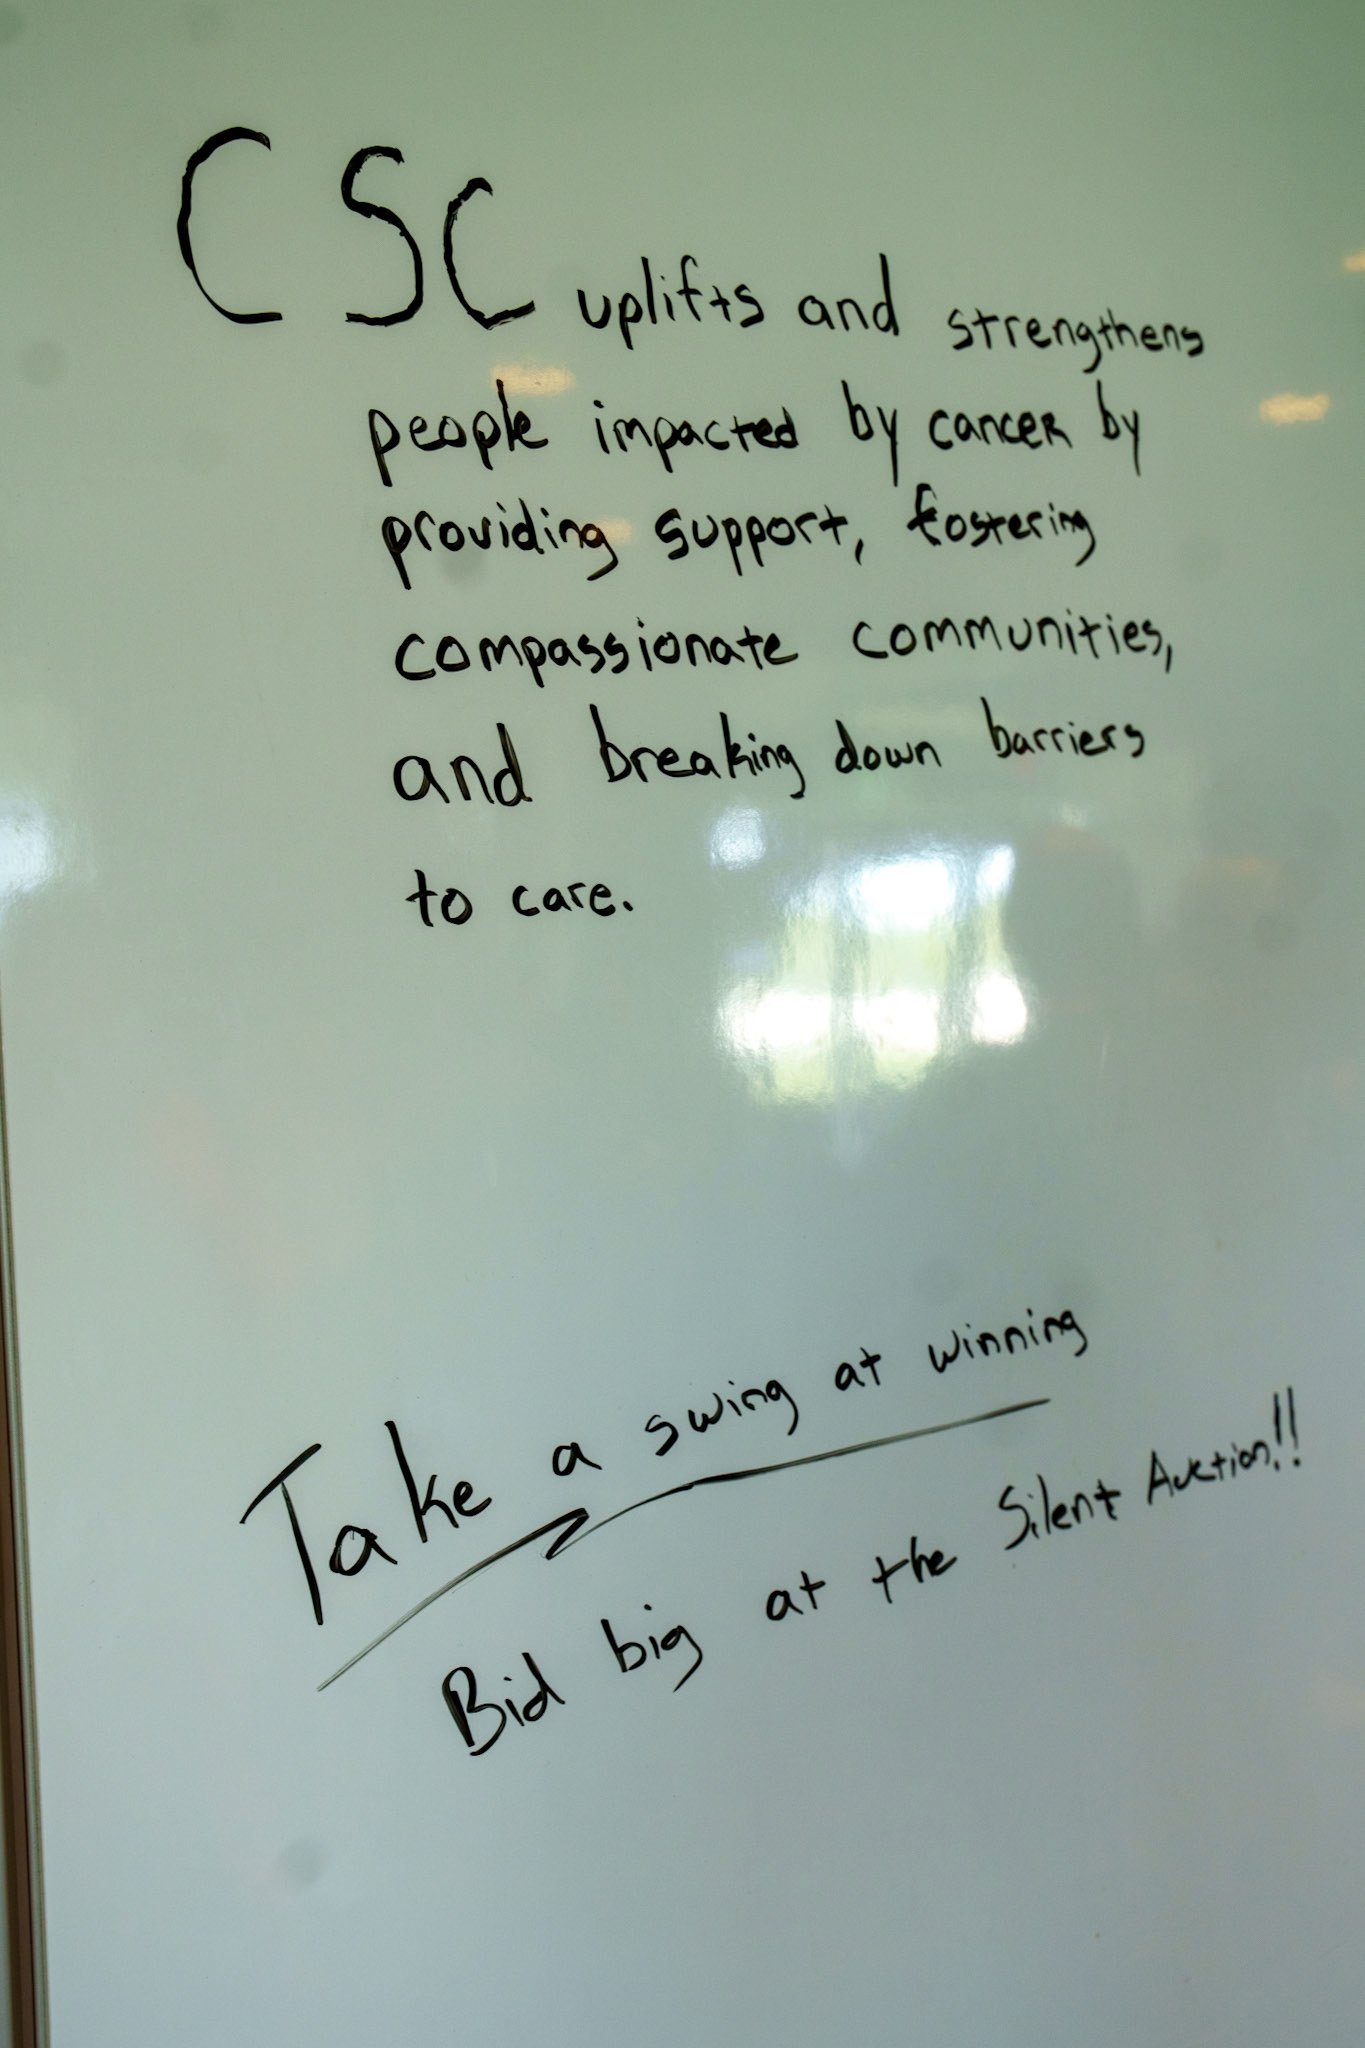 CSC uplifts and strengthens
people impacted by cancer by
providing support, fostering
compassionate communities,
and breaking down barriers
to care.
Take a swing at winning
Bid big at the Silent Auction!!